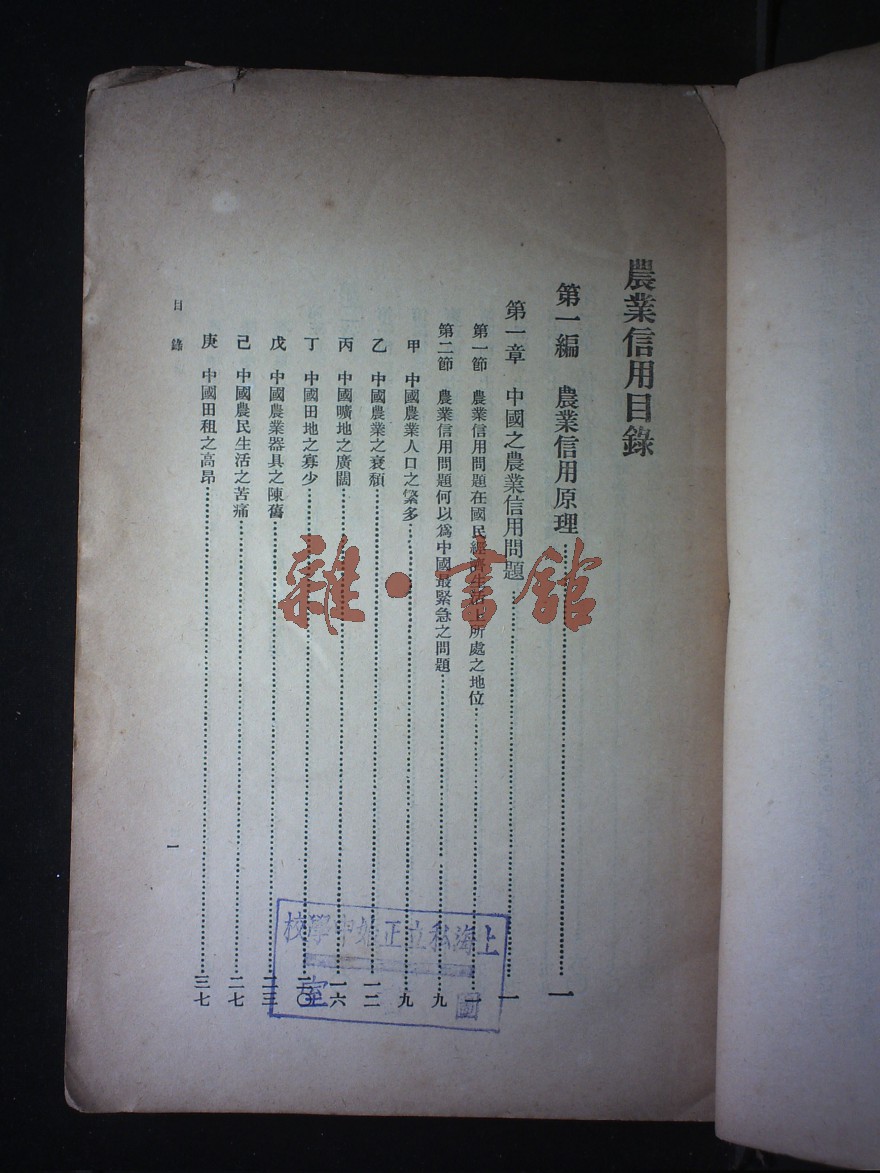 農業信用目錄
第一編　農業信用原理……一
第一章　中國之農業信用問題……一
第一節　農業信用問題在國民經濟生活上所處之地位……一
第二節　農業信用問題何以爲中國最緊急之問題……九
甲　中國農業人口之繁多……九
乙　中國農業之衰頹……一二
丙　中國曠地之廣闊……一六
丁　中國田地之寡少……二〇
戊　中國農業器具之陳舊……二三
己　中國農民生活之苦痛……二七
庚　中國田租之高昂……三七
目錄
一
雜·書館
上海私立正始中學校
圖
室